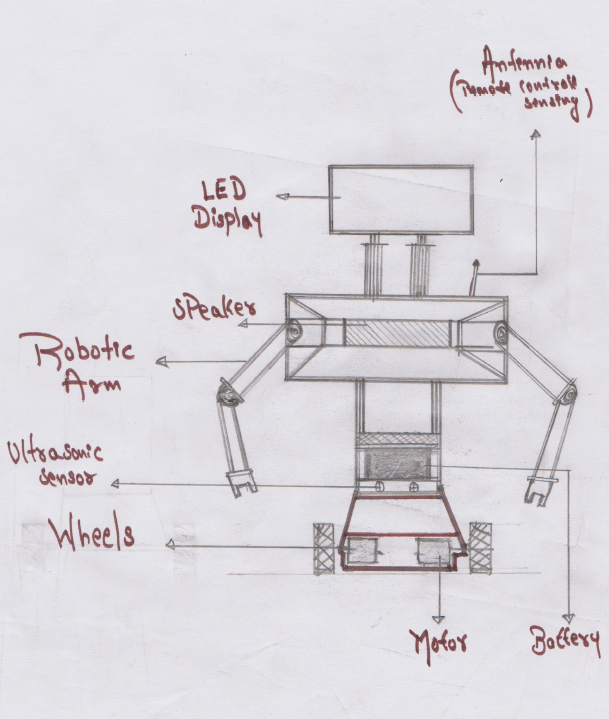 Antennia
(remote controll
sensing)
LED
Display
Speaker
Robotic
Arm
Ultrasonic
sensor
Wheels
Motor
Battery